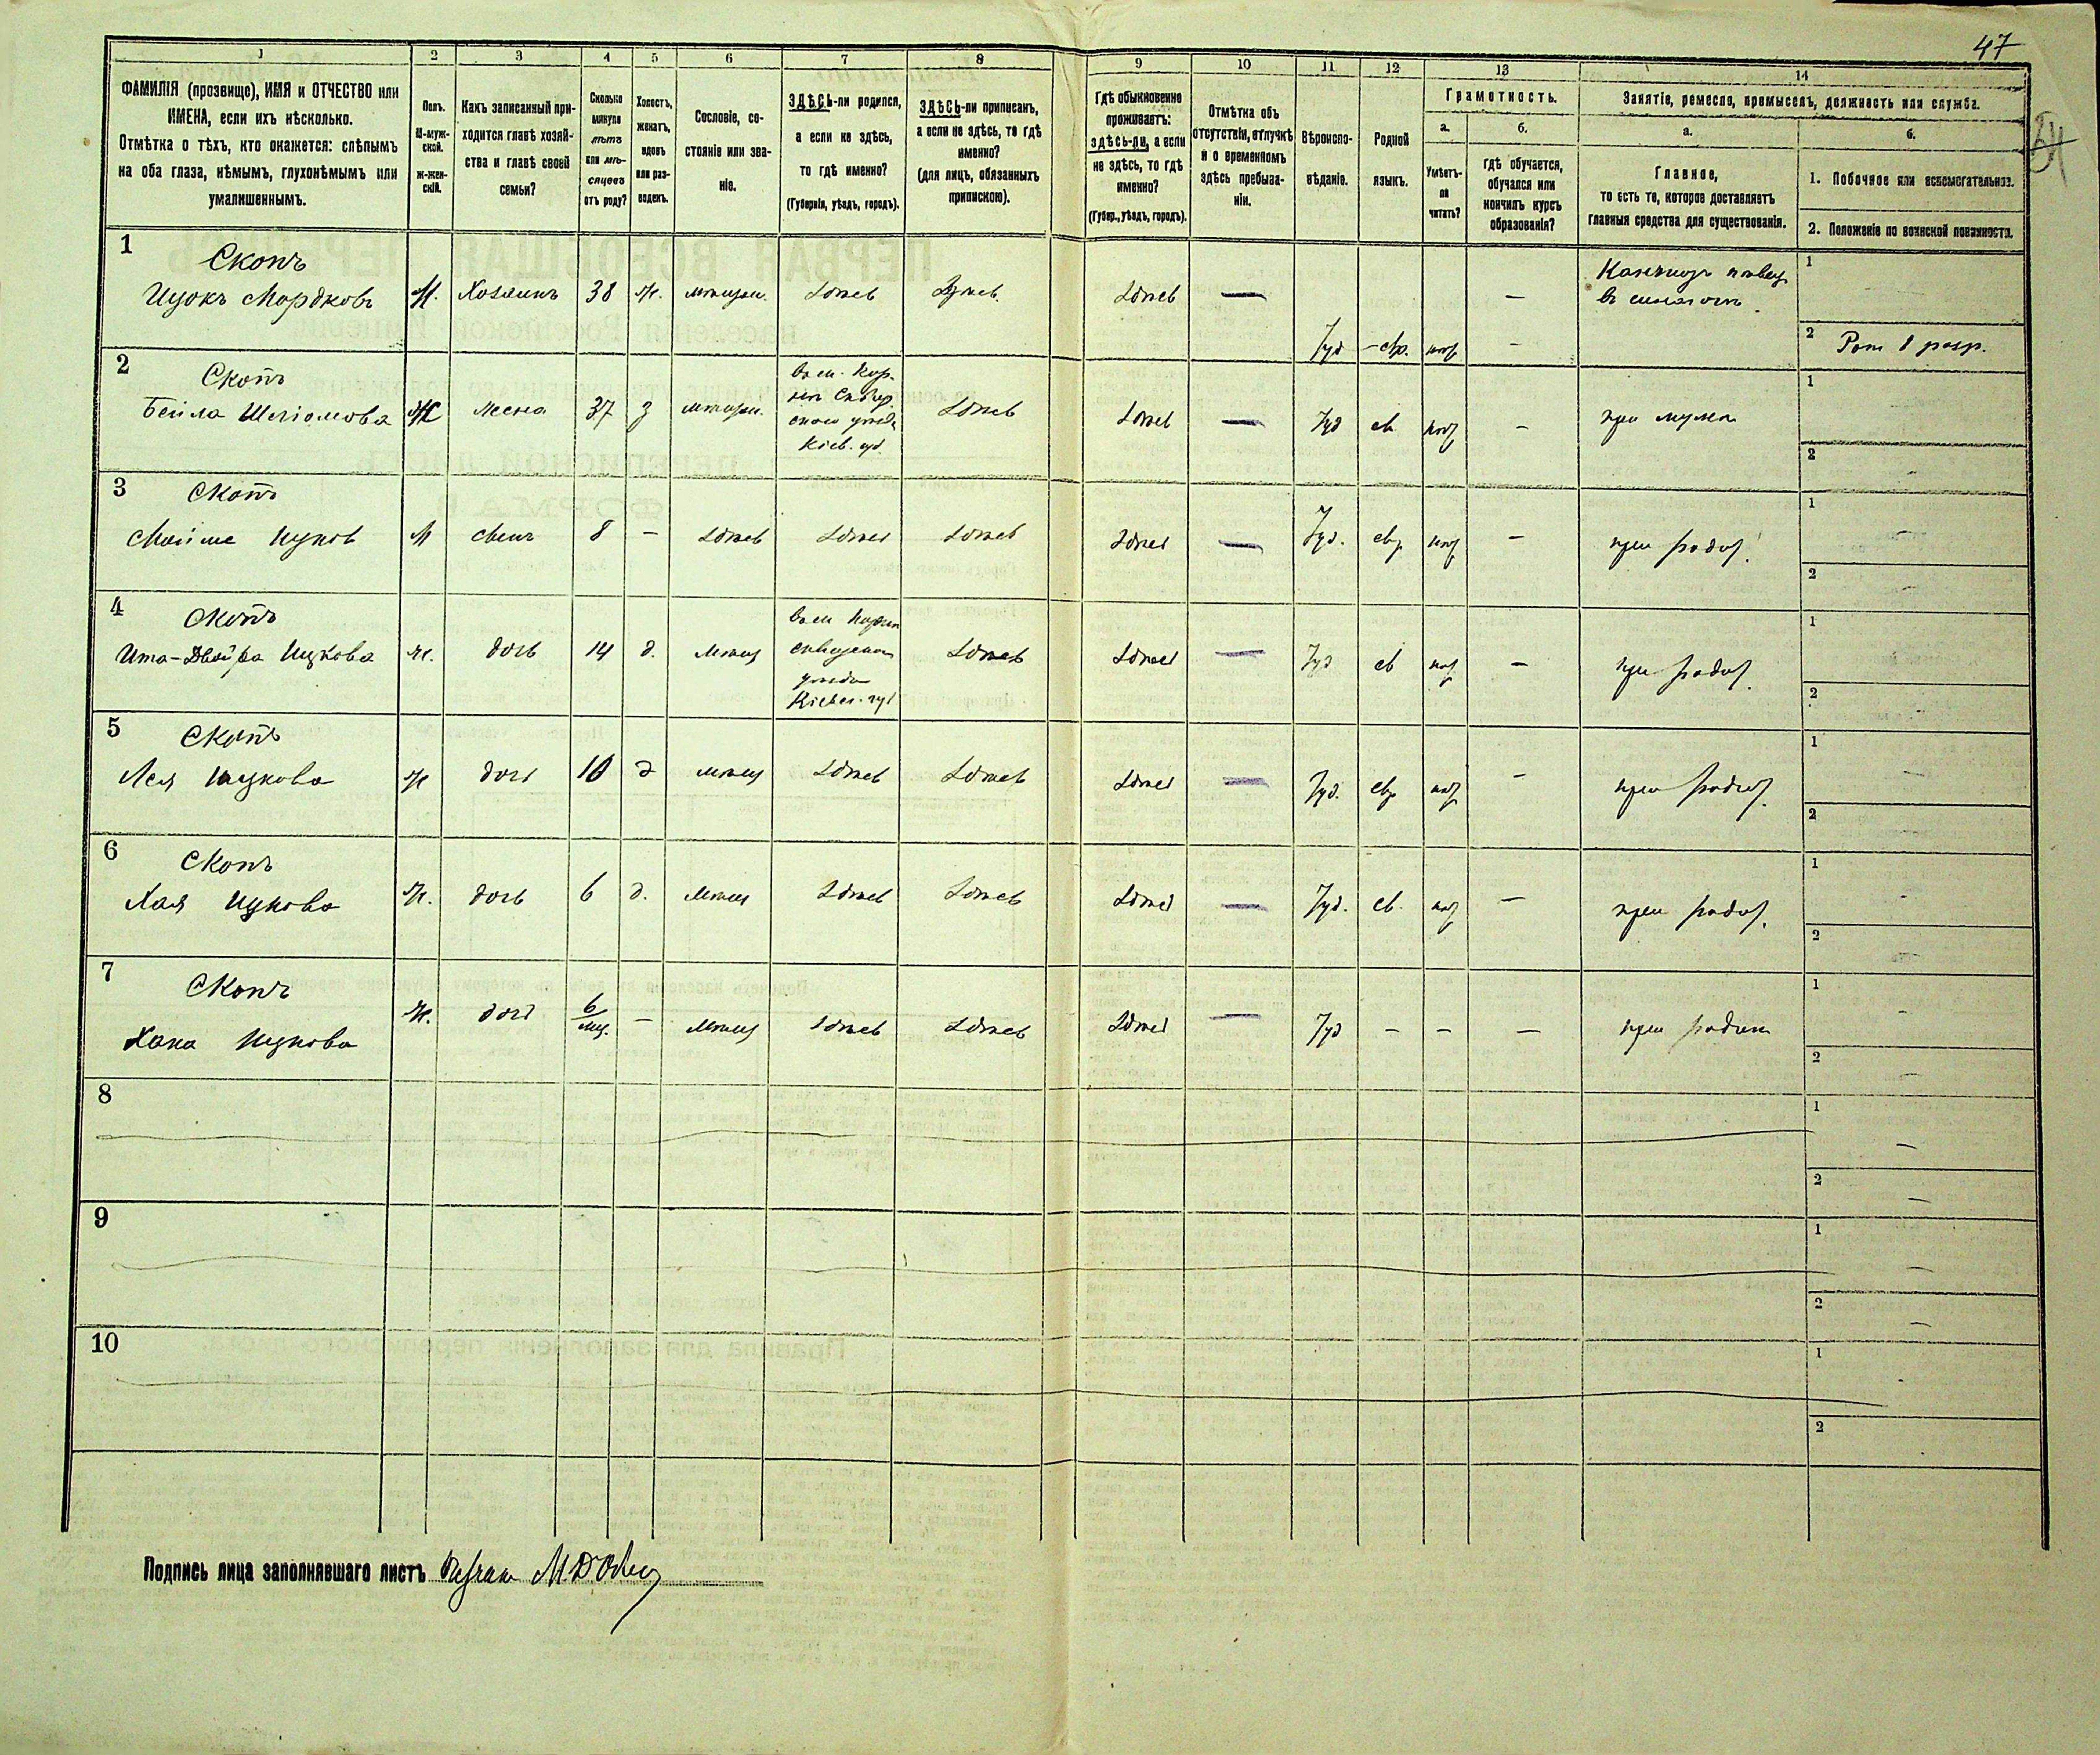 47
54
1
2
3
4
5
6
7
8
9
10
11
12
13
14
ФАМИЛІЯ (прозвище), ИМЯ и ОТЧЕСТВО или
ИМЕНА, если ихъ нѣсколько.
Отмѣтка о тѣхъ, кто окажется: слѣпымъ
на оба глаза, нѣмымъ, глухонѣмымъ или
умалишеннымъ.
Полъ.
М-муж-
ской.
Ж-жен-
скій.
Какъ записанный при-
ходится главѣ хозяй-
ства и главѣ своей
семьи?
Сколько
минуло
лѣтъ
или мѣ-
сяцевъ
отъ роду?
Холостъ,
женатъ,
вдовъ
или раз-
веденъ.
Сословіе, со-
стояніе или зва-
ніе.
ЗДѢСЬ-ли родился,
а если не здѣсь,
то гдѣ именно?
(Губернія, уѣздъ, городъ).
ЗДѢСЬ-ли приписанъ,
а если не здѣсь, то гдѣ
именно?
(для лицъ, обязанныхъ
припискою).
Гдѣ обыкновенно
проживаетъ:
здѣсь-ли, а если
не здѣсь, то гдѣ
именно?
(Губер., уѣздъ, городъ).
Отмѣтка объ
отсутствіи, отлучкѣ
и о временномъ
здѣсь пребыва-
ніи.
Вѣроиспо-
вѣданіе.
Родной
языкъ.
Грамотность.
а.
б.
Умѣетъ-
ли
читать?
гдѣ обучается,
обучался или
кончилъ курсъ
образованія?
Занятіе, ремесло, промыселъ, должность или служба.
а.
б.
Главное,
то есть то, которое доставляетъ
главныя средства для существованія.
1. Побочное или вспомогательное.
2. Положеніе по воинской повинности.
1
Скопъ
Ицокъ Мордковъ
М.
Хозяинъ
38
ж.
мѣщан.
здѣсь
здѣсь
здѣсь
—
Іуд
евр.
—
въ синагогѣ
1
2
2
Скопъ
Бейла Шліомова
Ж
жена
37
з
мѣщан.
Кіев. губ.
здѣсь
здѣсь
—
Іуд
ев
—
при мужѣ
1
2
3
Скопъ
М
сынъ
8
—
здѣсь
здѣсь
здѣсь
здѣсь
—
Іуд.
евр
—
при род.
1
2
4
Скопъ
Ита-Двойра Ицкова
ж.
дочь
14
д.
мѣщ
уѣзда
здѣсь
здѣсь
—
Іуд
ев
—
при род.
1
2
5
Скопъ
Лея Ицкова
ж
дочь
10
д
мѣщ
здѣсь
здѣсь
здѣсь
—
Іуд.
евр
—
при род.
1
2
6
Скопъ
Хая Ицкова
ж.
дочь
6
д.
мѣщ
здѣсь
здѣсь
здѣсь
—
Іуд.
ев.
—
при род.
1
2
7
Скопъ
Хана Ицкова
ж.
дочь
6
мц.
—
мѣщ
здѣсь
здѣсь
здѣсь
—
Іуд
—
—
—
при родит
1
2
8
1
2
9
1
2
10
1
2
Подпись лица заполнявшаго листъ